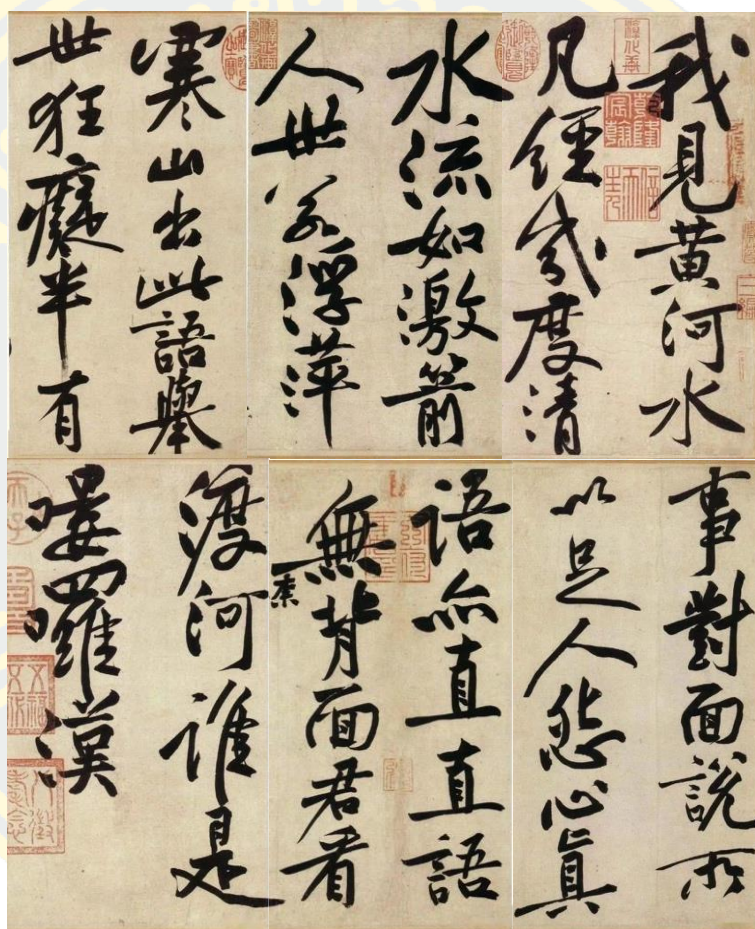 我見黄河水
凡經幾度清
水流如激箭
人世若浮萍
寒山出此語舉
世狂癡半有
事對面說所
以足人怨心真
語亦直直語
無背面君看
渡河誰是
嘍囉漢